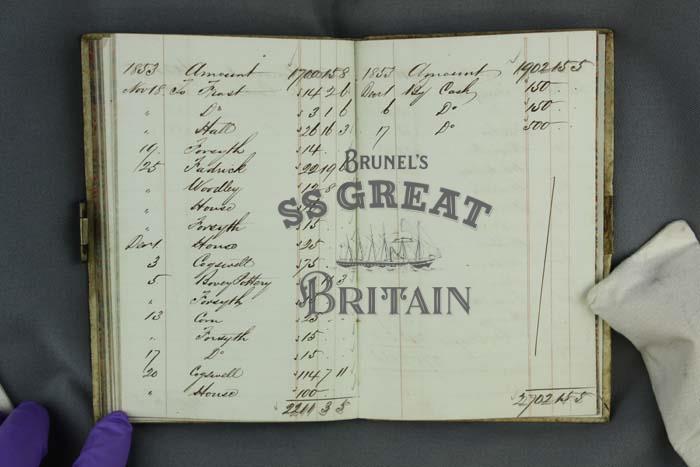 1853 Amount 1700 15 8
Nov 18 To Frost 142 6
" Do 31 6
" Hall 26 16 3
19 Forsyth 14
25 Fadrick 20 19
" Woodley 12 8
" House
" Forsyth 15
House 25
3 Cogswell 75
5 Bovey Pottery 3
" Forsyth
13 Corn 25
" Forsyth 15
17 Do 15
20 Cogswell 114 7 11
" House 100
2211 3 5
1853 Amount 1902 15 5
By Cash 150
6 Do 150
17 Do 500
2702 15 5
BRUNEL'S
SS GREAT
BRITAIN